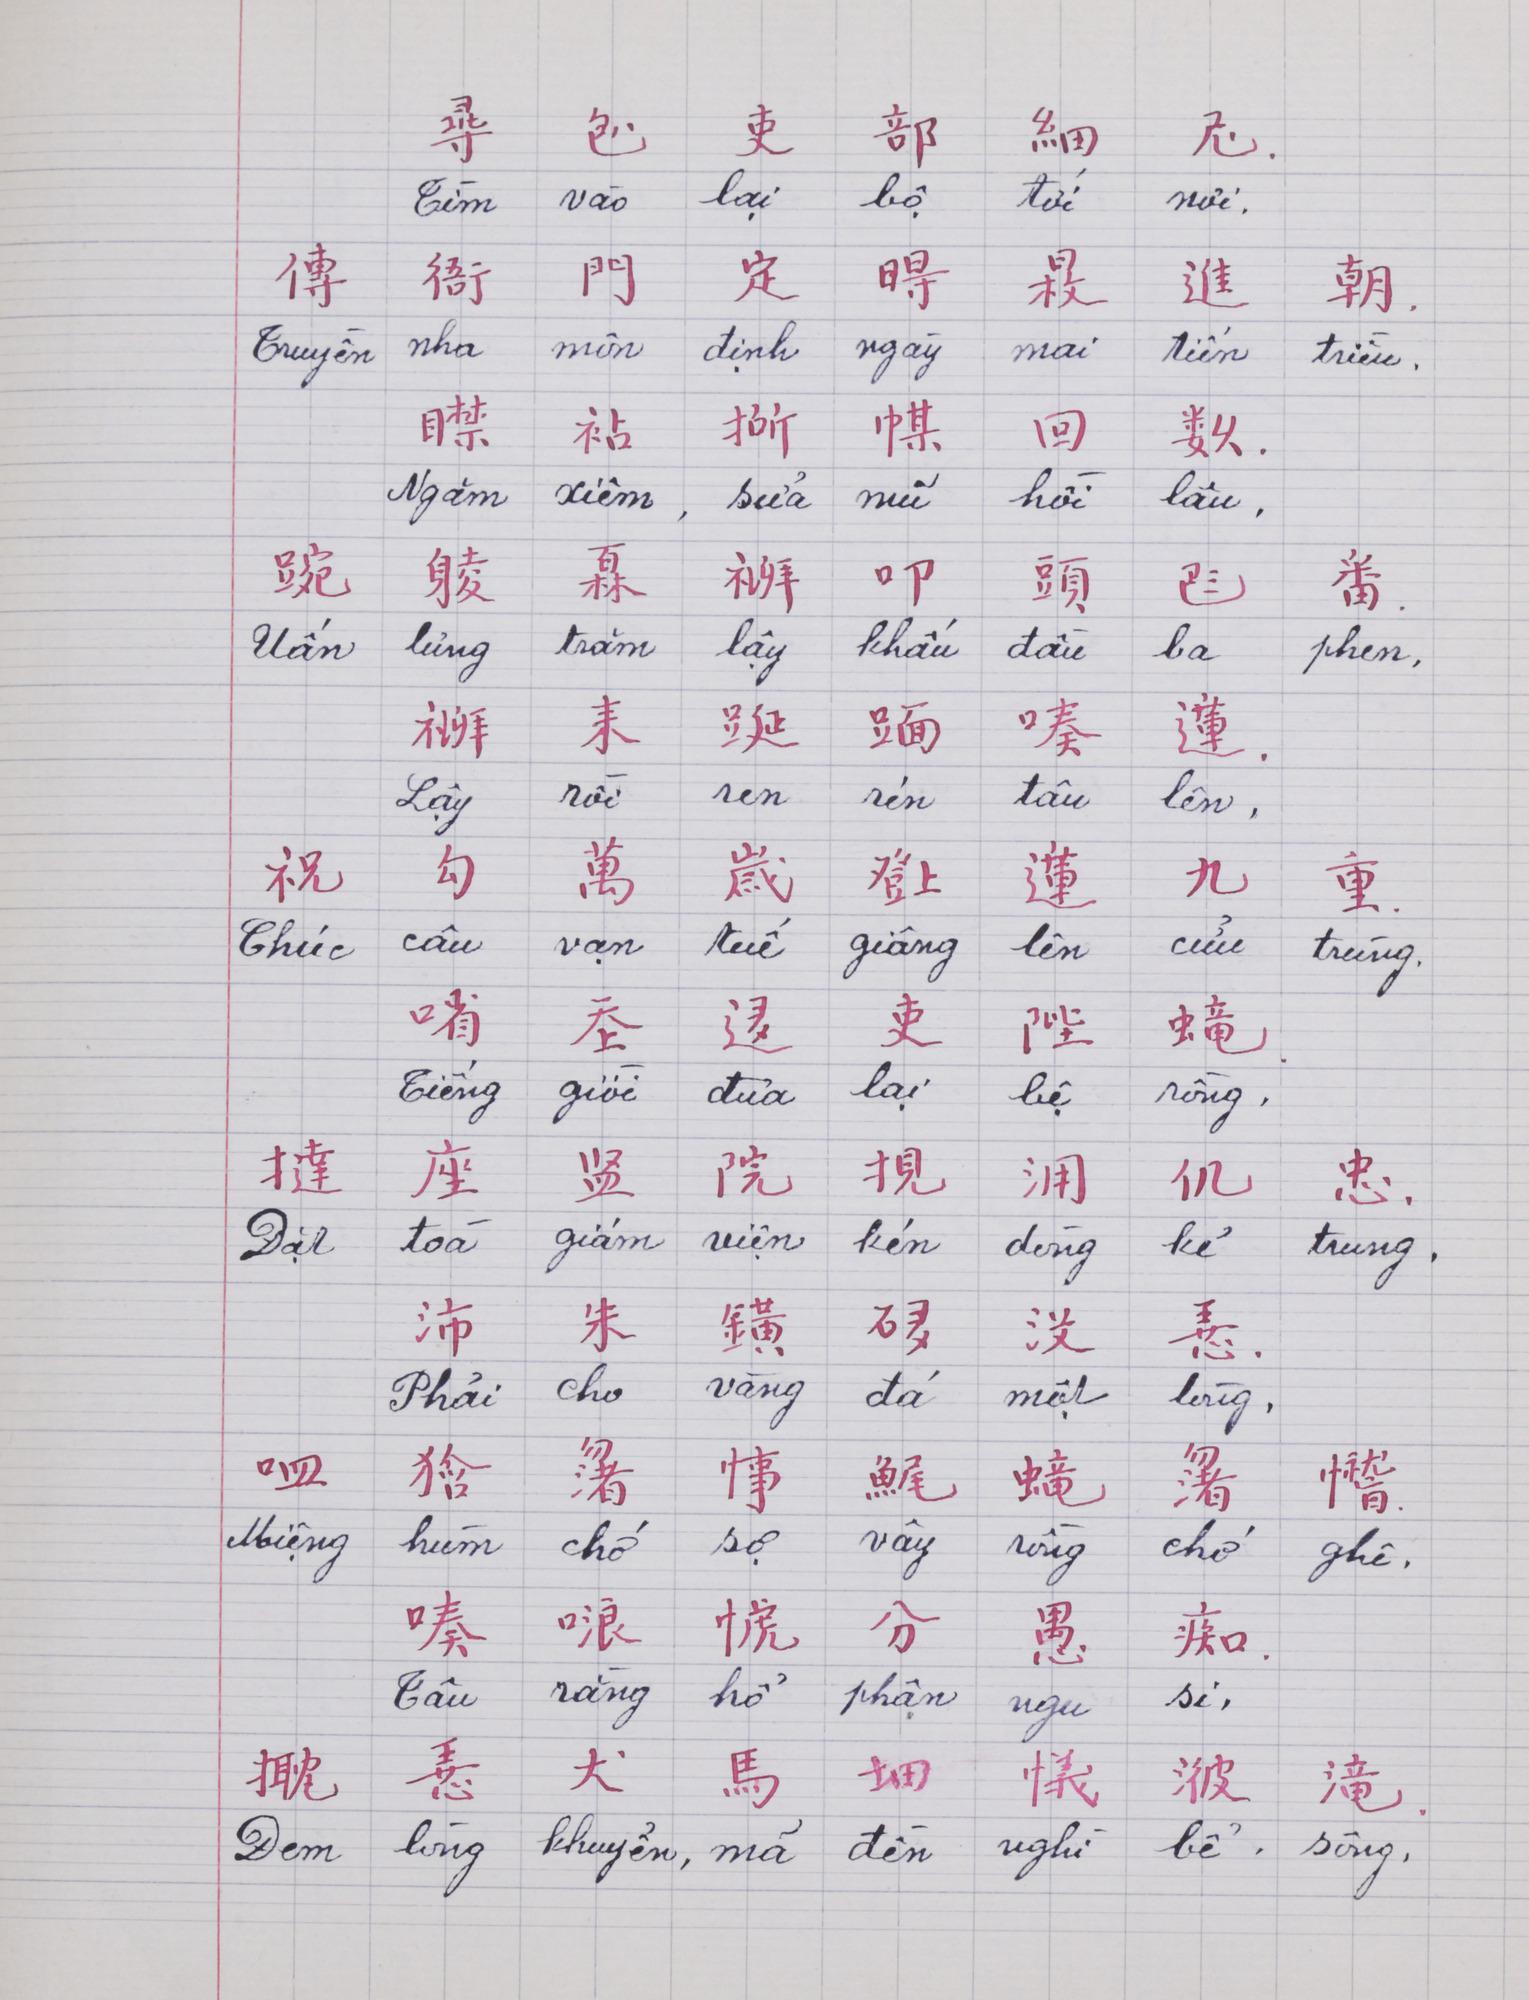 尋𠓨吏部細尼.
Tìm vào lại bộ tới nơi.
傳衙門定𣈜𣈕進朝.
Truyền nha môn định ngày mai tiến triều.
回数.
Ngắm xiêm, sửa mũ hồi lâu,
𨀤𦡟𤾓𥛉叩頭𠀧番.
Uấn lưng trăm lậy khấu đầu ba phen,
𥛉耒𨁍𨂔嗪蓮.
Lậy rồi ren rén tâu lên,
祝勾萬歲𨅹蓮九重.
Chúc câu vạn tuế giâng lên cửu trùng.
㗂𡗶迻吏陛蠬.
Tiếng giời đưa lại bệ rồng,
撻座监院挸用仉忠.
Đặt toà giám viện kén dòng kẻ trung,
沛朱鐄𥒥没𢚸.
Phải cho vàng đá một lòng,
𠰘㺀𪠟㤕𩺮蠬𪠟.
Miệng hùm chớ sợ vây rồng chớ ghê.
嗪㖫㤥分愚痴.
Tâu rằng hổ phận ngu si,
𢚸犬馬㙮𢣂㴜滝.
Đem lòng khuyển, mã đền nghì bể, sông,